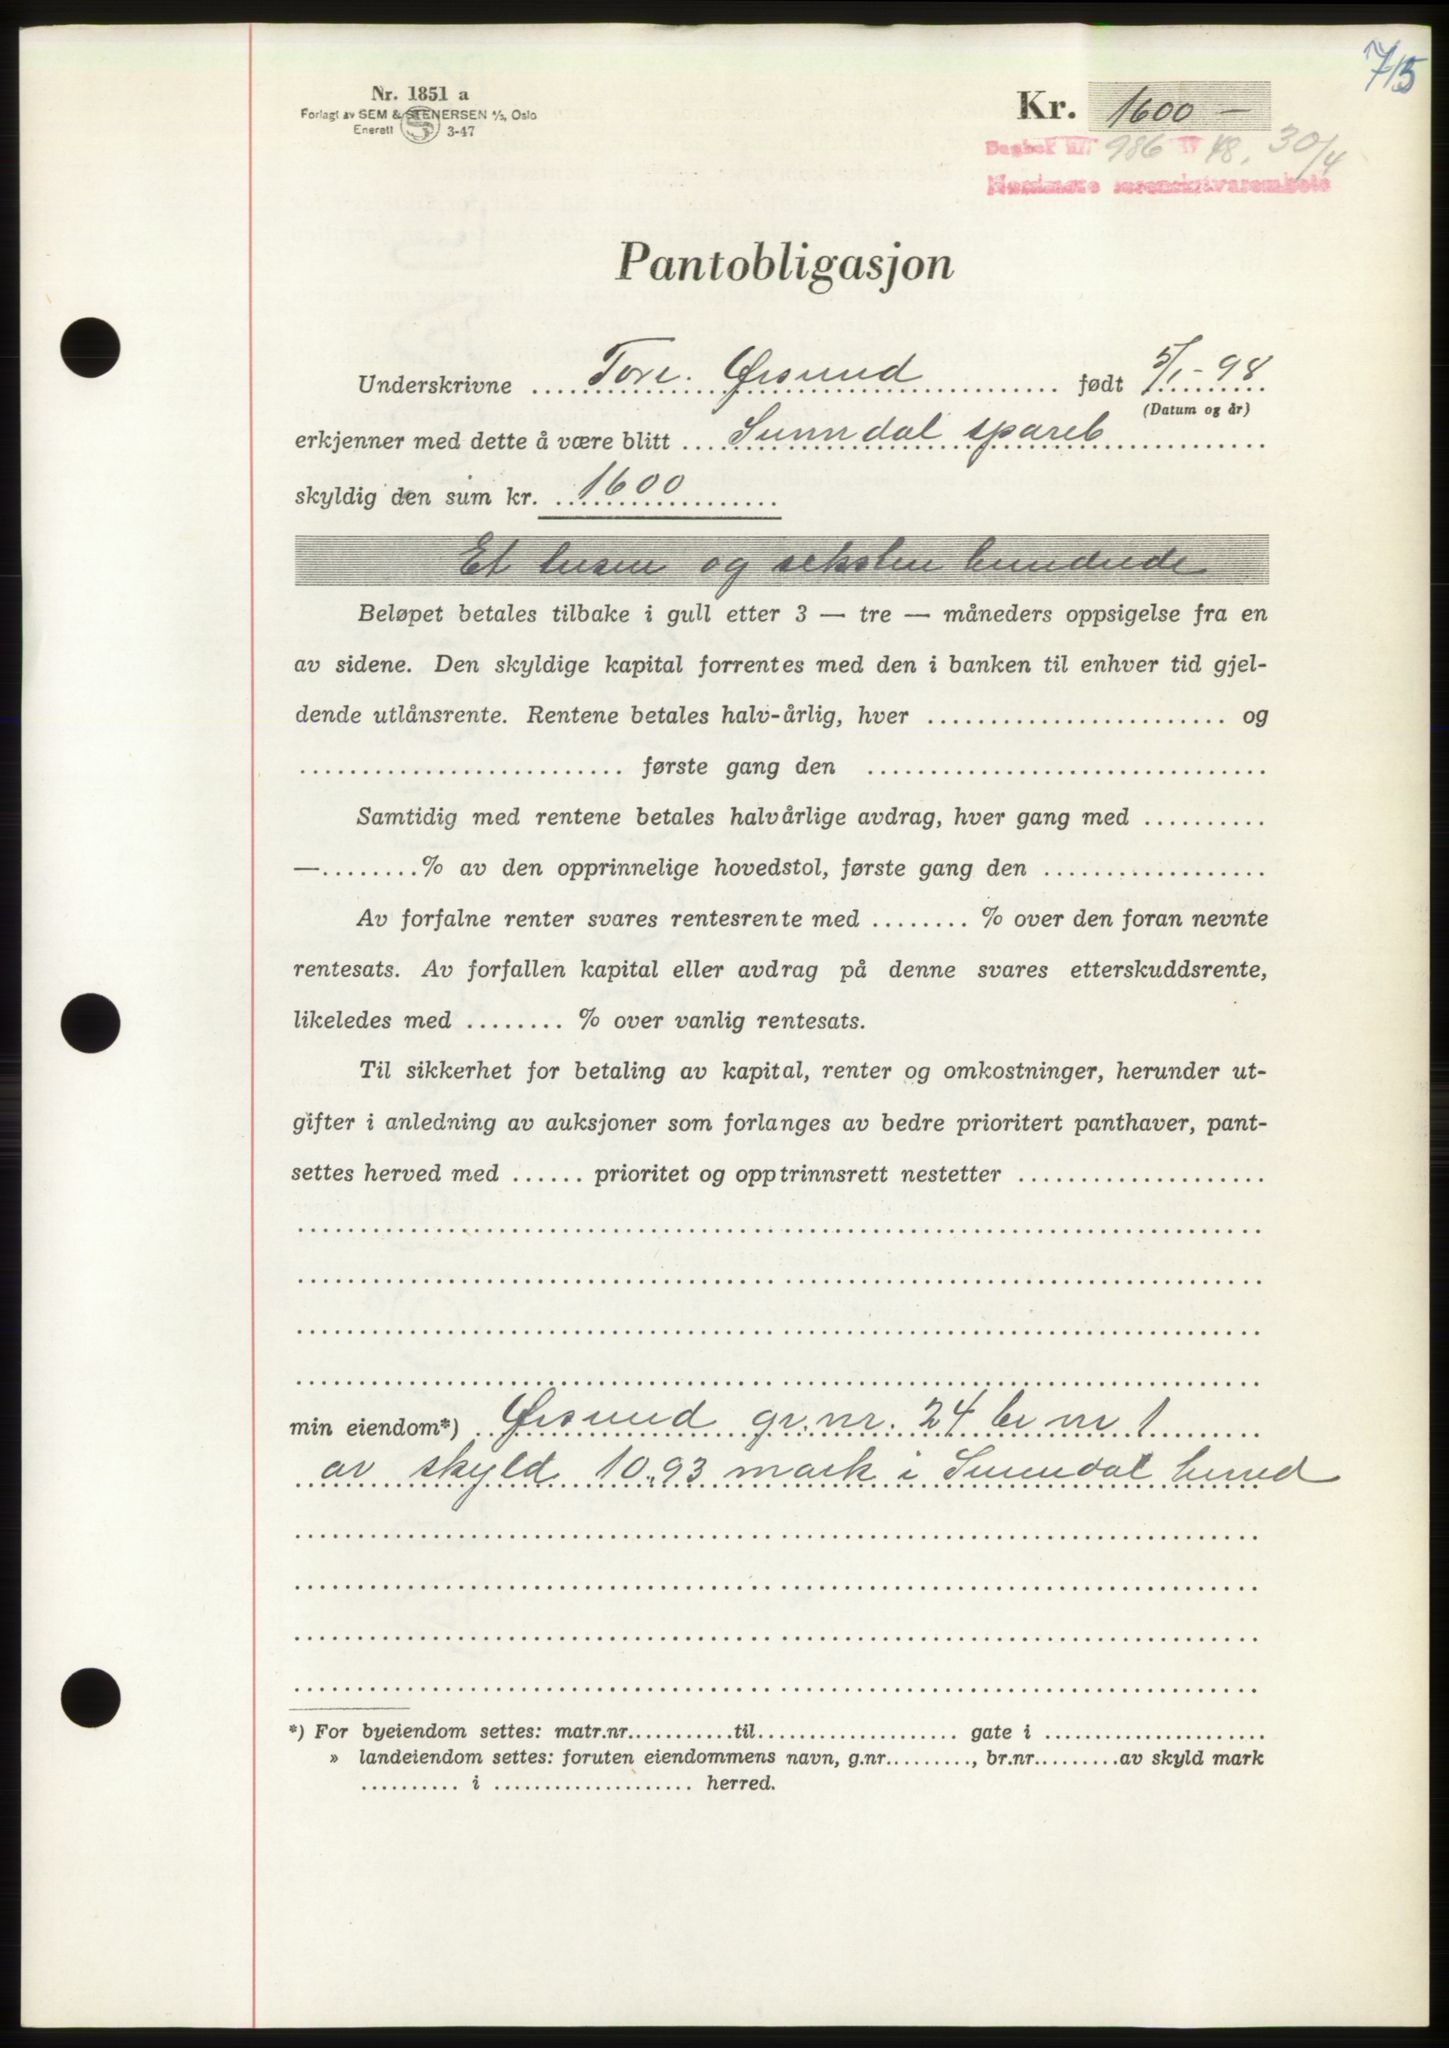 715
Nr. 1851 a
Forlagt av SEM & STENERSEN A/S, Oslo
Enerett 3-47
Kr. 1600 —
Dagbok nr. 986 19 48. 30/4
Nordmøre sorenskrivarembete
Pantobligasjon
Underskrivne Tore Ørsund født 5/1-98
(Datum og år)
erkjenner med dette å være blitt Sunndal spareb
skyldig den sum kr. 1600
Et tusen og seksten hundrede
Beløpet betales tilbake i gull etter 3 — tre — måneders oppsigelse fra en
av sidene. Den skyldige kapital forrentes med den i banken til enhver tid gjel-
dende utlånsrente. Rentene betales halv-årlig, hver ........................ og
.......................... første gang den ................................
Samtidig med rentene betales halvårlige avdrag, hver gang med ..........
—........% av den opprinnelige hovedstol, første gang den ..................
Av forfalne renter svares rentesrente med ........ % over den foran nevnte
rentesats. Av forfallen kapital eller avdrag på denne svares etterskuddsrente,
likeledes med ........ % over vanlig rentesats.
Til sikkerhet for betaling av kapital, renter og omkostninger, herunder ut-
gifter i anledning av auksjoner som forlanges av bedre prioritert panthaver, pant-
settes herved med ...... prioritet og opptrinnsrett nestetter ....................
min eiendom*) Ørsund gr. nr. 24 br nr 1
av skyld 10.93 mark i Sunndal herred
*) For byeiendom settes: matr.nr...........til.................... gate i ......................
» landeiendom settes: foruten eiendommens navn, g.nr.........., br.nr.........av skyld mark
.......... i .................... herred.